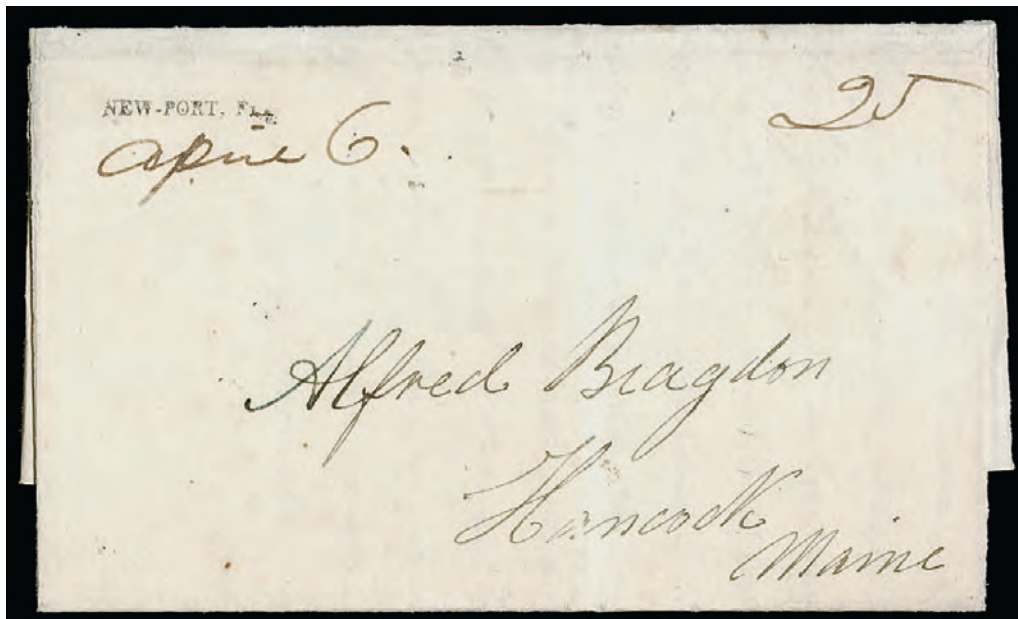 NEW-PORT, FLA.
April 6.
25
Alfred Bragdon
Hancock
Maine